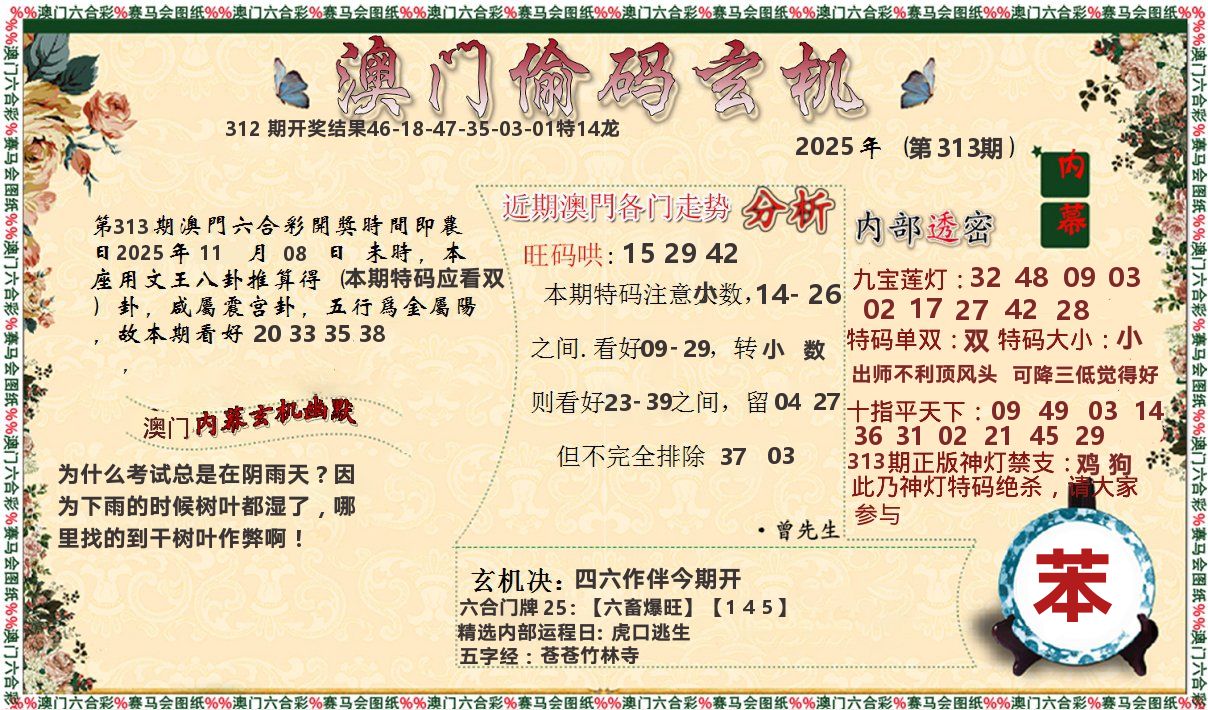 %%澳门六合彩%赛马会图纸%%澳门六合彩%赛马会图纸%%澳门六合彩%赛马会图纸%%澳门六合彩%赛马会图纸%%澳门六合彩%赛马会图纸%%澳门六合彩%赛马会图纸%%
澳门偷码玄机
312 期开奖结果46-18-47-35-03-01特14龙
2025年 (第313期)
内幕
第313期澳門六合彩開獎時間即農
日2025年11 月08 日 未時，本
座用文王八卦推算得 (本期特码应看双
) 卦，咸屬震宫卦，五行爲金屬陽
，故本期看好 20 33 35 38
，
澳门 内幕玄机幽默
为什么考试总是在阴雨天？因
为下雨的时候树叶都湿了，哪
里找的到干树叶作弊啊！
近期澳門各门走势 分析
旺码哄: 15 29 42
本期特码注意小数,14- 26
之间. 看好09-29，转 小 数
则看好23-39之间，留 04 27
但不完全排除 37 03
·曾先生
内部透密
九宝莲灯：32 48 09 03
02 17 27 42 28
特码单双：双 特码大小：小
出师不利顶风头 可降三低觉得好
十指平天下：09 49 03 14
36 31 02 21 45 29
313期正版神灯禁支：鸡 狗
此乃神灯特码绝杀，请大家
参与
苯
玄机决：四六作伴今期开
六合门牌25：【六畜爆旺】【1 4 5】
精选内部运程日: 虎口逃生
五字经：苍苍竹林寺
%%澳门六合彩%赛马会图纸%%澳门六合彩%赛马会图纸%%澳门六合彩%赛马会图纸%%澳门六合彩%赛马会图纸%%澳门六合彩%赛马会图纸%%澳门六合彩%赛马会图纸%%